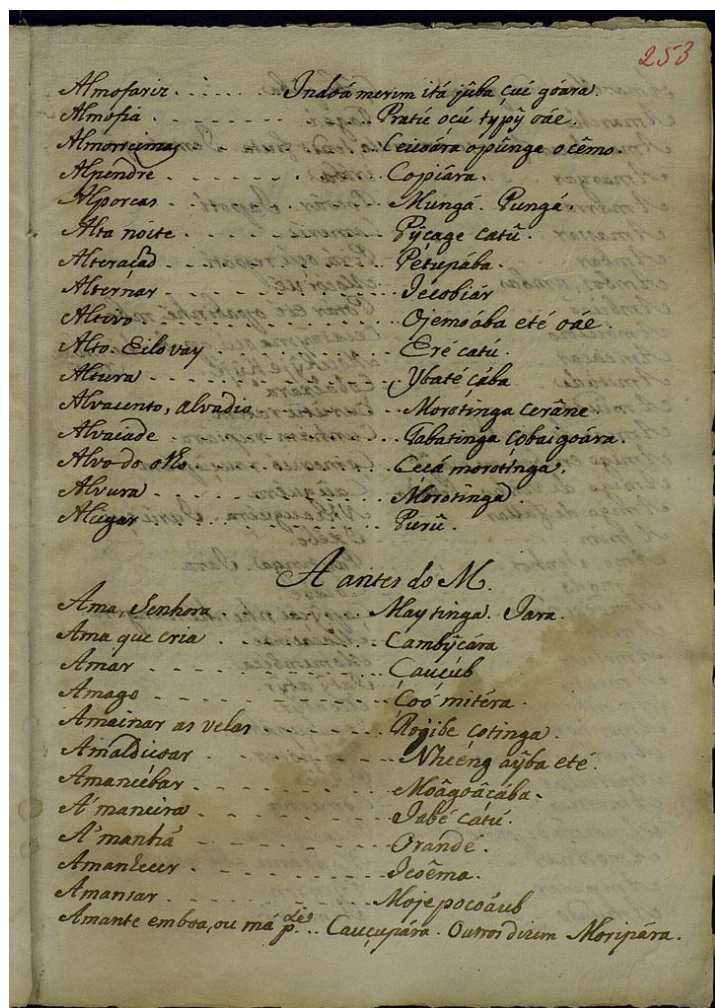 253
Almofariz . . . . . . . Indoá merim itá jũba çui góara.
Almofia . . . . . . . Pratú oçú typỹ oáe.
Almorreimas Ceicoára opũnga ocêmo.
Alpendre . . . . . . . Copiára.
Alporcas . . . . . . . Mungá. Pungá.
Alta noite . . . . . . . Pỹçage catũ.
Alteraçaõ . . . . . . . Petupába.
Alternar . . . . . . . Jecobiár
Altivo . . . . . . . Ojemoába eté oáe.
Alto. Eilo vay . . . . . . . Eré catú.
Altura . . . . . . . Ybaté çába
Alvacento, alvadio . . . . . . . Morotinga cerâne.
Alvaiade . . . . . . . Tabatinga çobaigoára.
Alvo do olho . . . . . . . Ceçá morotinga.
Alvura . . . . . . . Morotinga.
Alugar . . . . . . . Purũ.
A antes do M.
Ama, Senhora . . . . . . . May tinga. Jara.
Ama que cria . . . . . . . Cambỹçára
Amár . . . . . . . Çauçúb
Amago . . . . . . . Çoó mitéra.
Amainar as velas . . . . . . . Rojibe çotinga.
Amaldiçoar . . . . . . . Nheéng aỹba eté.
Amancebar . . . . . . . Moâgoâçába.
A'maneira . . . . . . . Jabé catú.
A'manhã . . . . . . . Orandé.
Amanhecer . . . . . . . Icoêma.
Amansar . . . . . . . Mojepocoáub
Amante em boa, ou má p.te . . Çauçupára. Outros dizem Moripára.